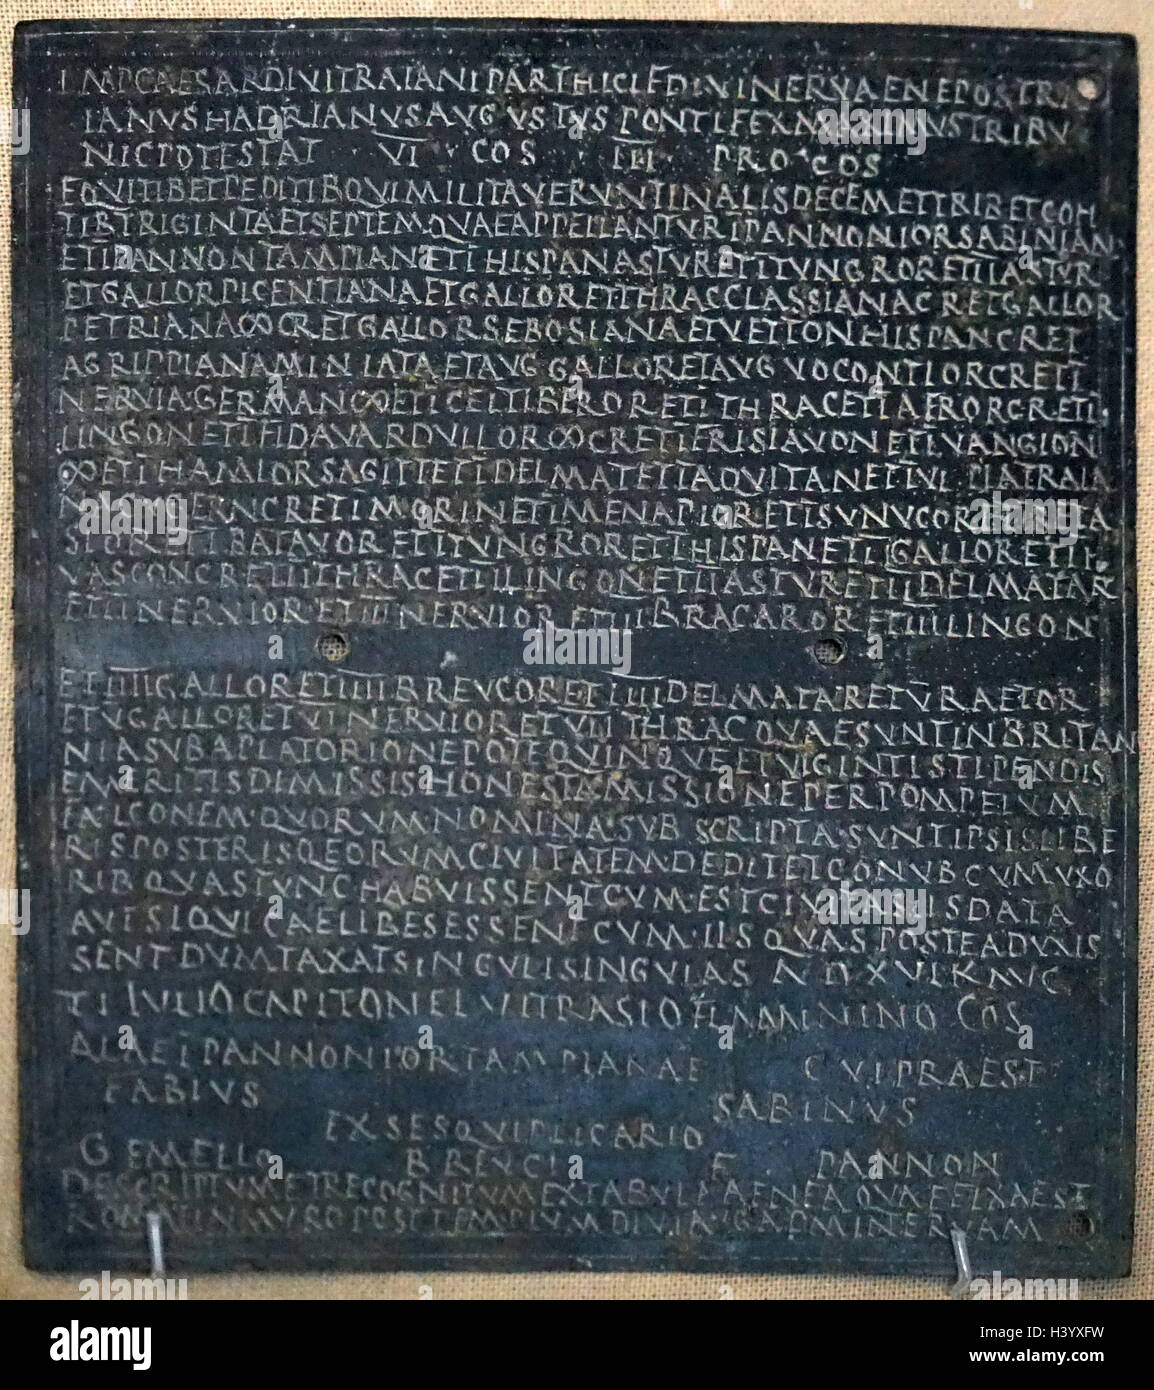 IMPCAESARDIVITRAIANIPARTHICIFDIVINERVAENEPOSTRA
IANVSHADRIANVSAVGVSTVSPONTIFEXMAXIMVSTRIBV
NICPOTESTAT · VI · COS · III · PRO·COS
EQVITIBETPEDITIBQVIMILITAVERVNTINALISDECEMETTRIBETCOH
TIBTRIGINTAETSEPTEMQVAEAPPELLANTVRIPANNONIORSABINIAN
ETIPANNONTAMPIANETIHISPANASTVRETITVNGRORETIIASTVR
ETGALLORPICENTIANAETGALLORETITHRACCLASSIANACRETGALLOR
PETRIANA∞CRETGALLORSEBOSIANAETVETTONHISPANCRET
AGRIPPIANAMINIATAETAVGGALLORETIAVGVOCONTIORCRETI
NERVIAGERMAN∞ETICELTIBERORETITHRACETIAFRORCRETI
LINGONETIFIDAVARDVLLOR∞CRETIFRISIAVONETIVANGION
∞ETIHAMIORSAGITTETIDELMATETIAQVITANETIVLPIATRAIA
ETIMORINETIMENAPIORETISVNVCORETIBETA
SIORETIBATAVORETITVNGRORETIHISPANETIIGALLORETII
VASCONCRETIITHRACETIILINGONETIIASTVRETIIDELMATAR
ETIINERVIORETIIINERVIORETIIIBRACARORETIIIILINGON
ETIIIIGALLORETIIIIBREVCORETIIIIDELMATARETVRAETOR
ETVGALLORETVINERVIORETVIITHRACQVAESVNTINBRITAN
NIASVBAPLATORIONEPOTEQVINQVEETVIGINTISTIPENDIS
EMERITISDIMISSISHONESTAMISSIONEPERPOMPEIVM
FALCONEM·QVORVM·NOMINA·SVBSCRIPTA·SVNTIPSISLIBE
RISPOSTERISQEORVMCIVITATEMDEDITETCONVBCVMVXO
RIBQVASTVNCHABVISSENTCVMESTCIVITASIISDATA
AVTSIQVICAELIBESESSENTCVM·IISQVASPOSTEADVXIS
SENTDVMTAXATSINGVLISINGVLAS A D XVI K AVG
TI IVLIOCAPITONELVITRASIOFLAMININO COS
ALAEIPANNONIORTAMPIANAE CVIPRAEST
FABIVS SABINVS
EXSESQVIPLICARIO
GEMELLO BREVCI F PANNON
DESCRIPTVMETRECOGNITVMEXTABVLAAENEAQVAEFIXAEST
ROMAEINMVROPOSTTEMPLVMDIVIAVGADMINERVAM
alamy stock photo
alamy
H3YXFW
www.alamy.com